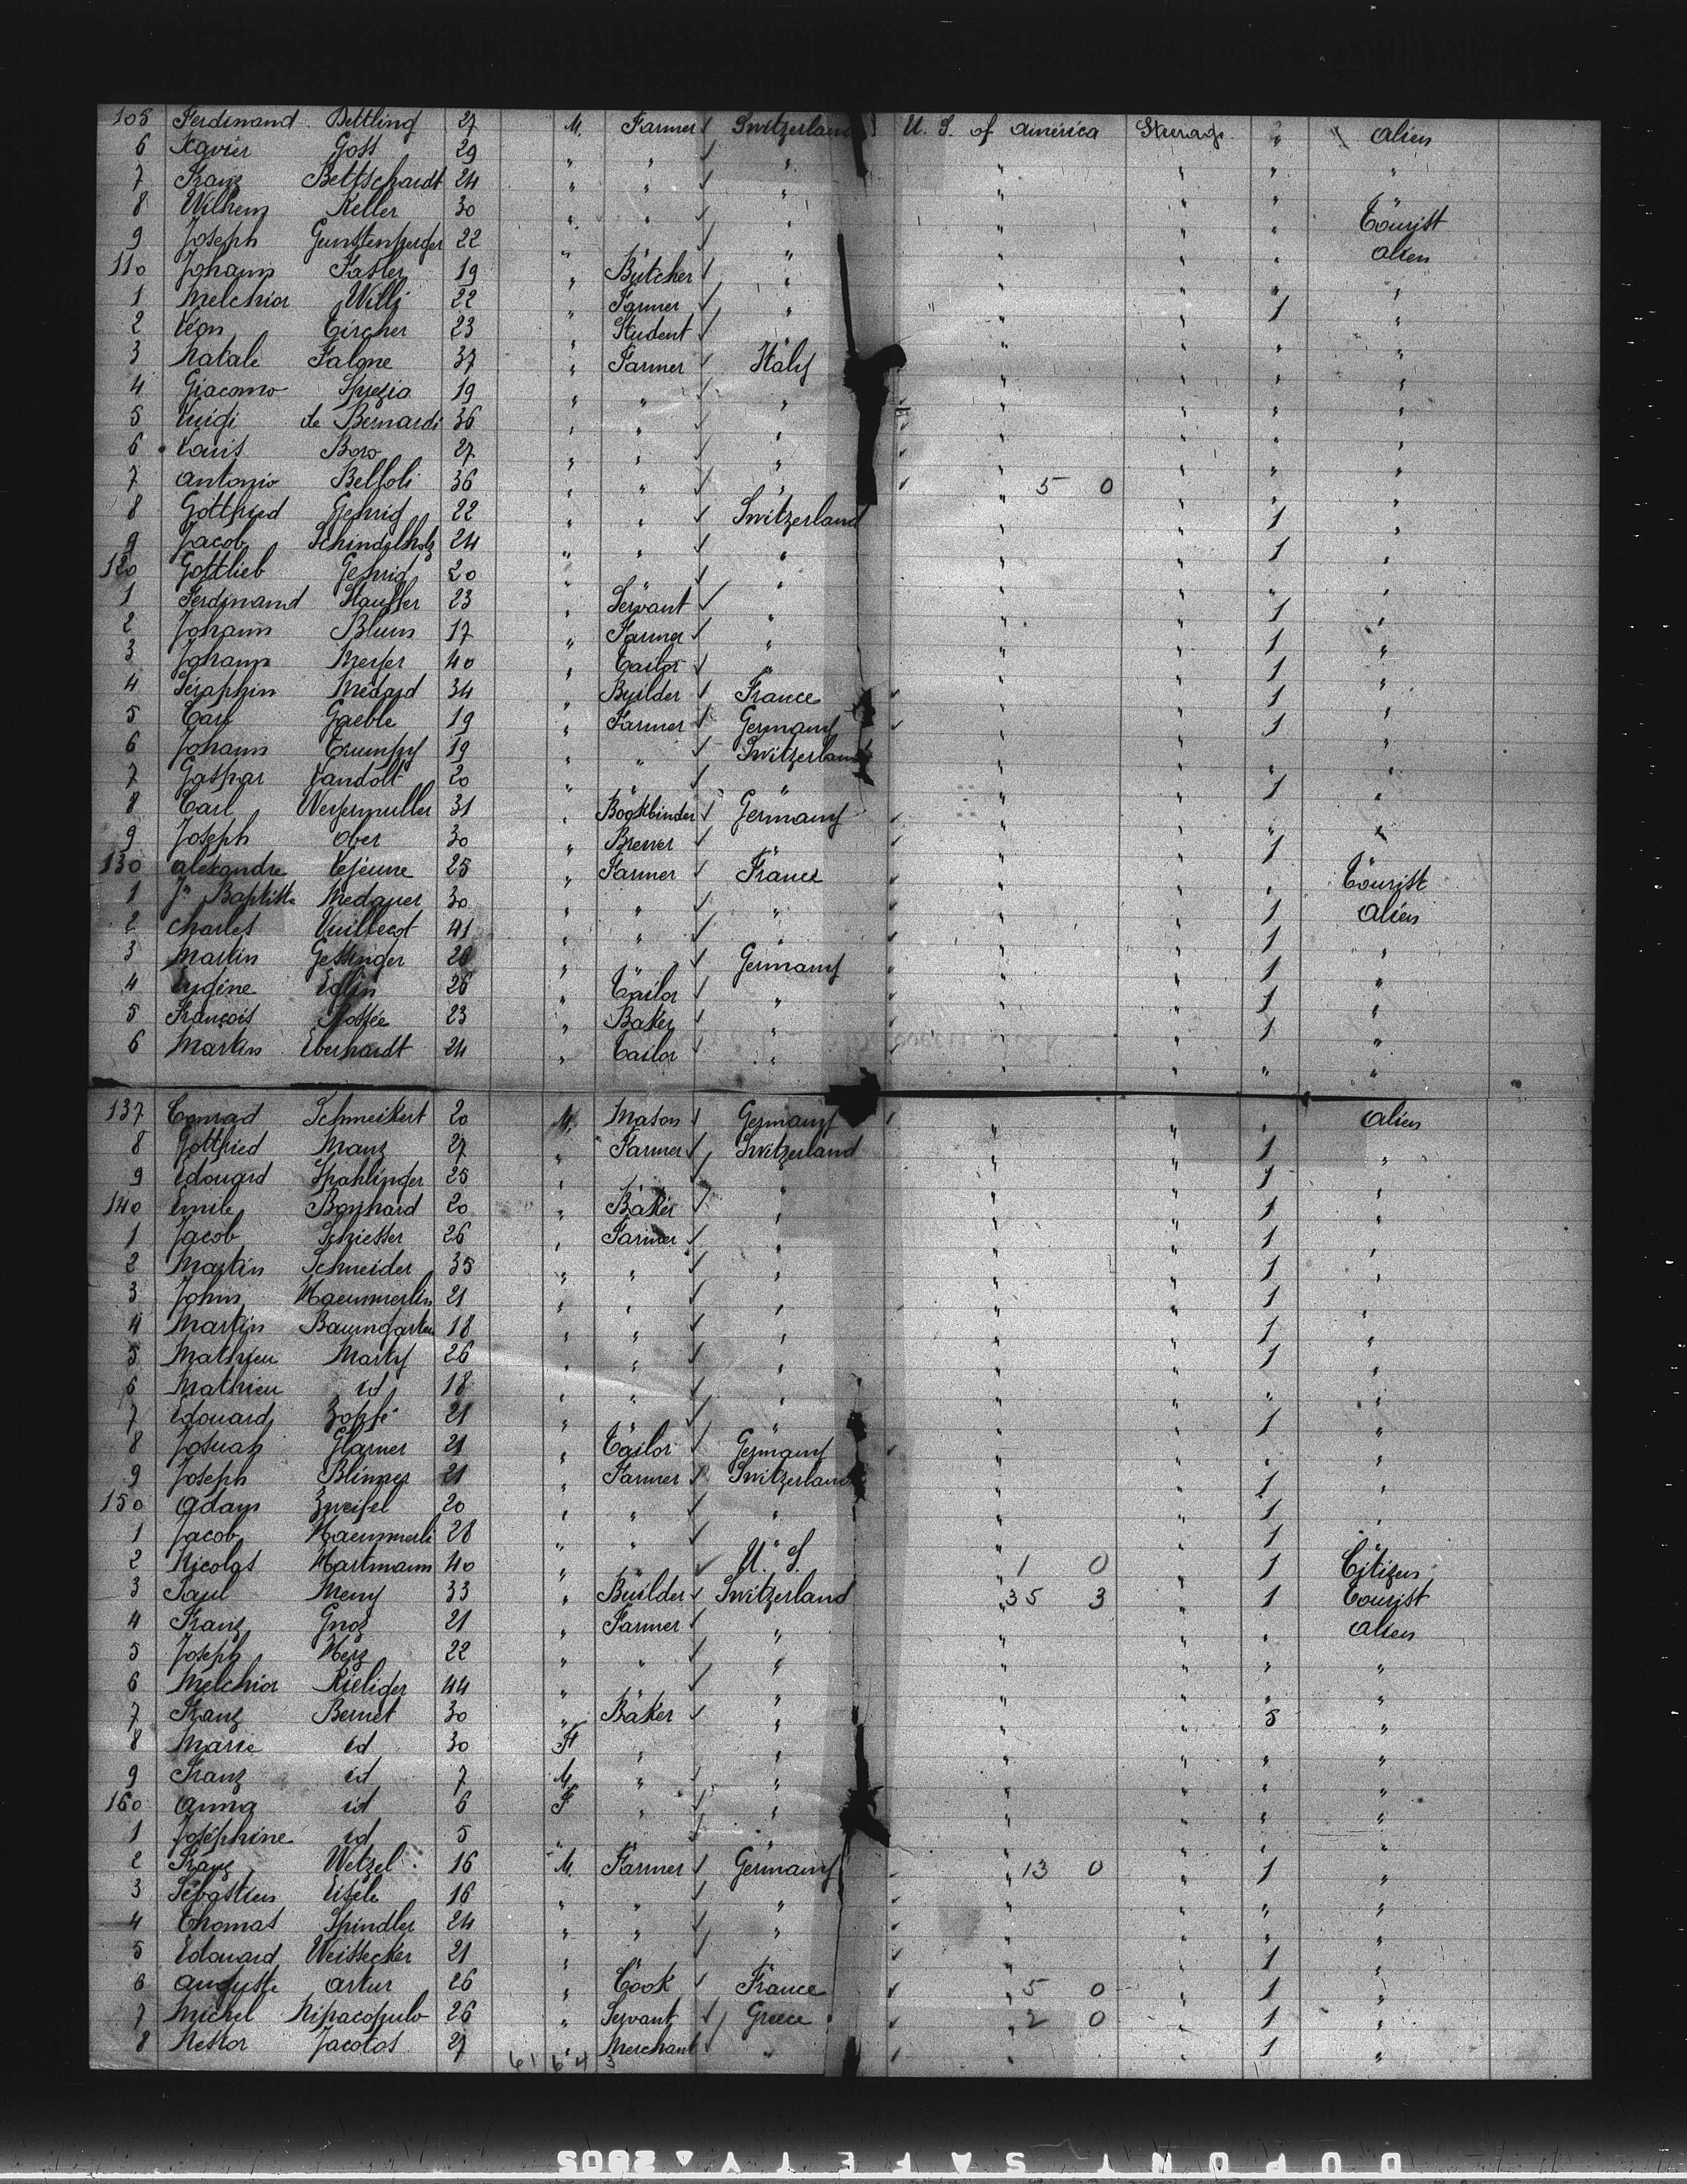 105 Ferdinand Bettling 27 M. Farmer Switzerland U. S. of América Steerage " Alien
6 Xavier Goss 29 " " " " " " "
7 Franz Bettschardt 24 " " " " " " "
8 Wilhem Keller 30 " " " " " " Tourist
9 Joseph Gunstenperger 22 " " " " " " Alien
110 Johann Fasler 19 " Butcher " " " " "
1 Melchior Willi 22 " Farmer " " " 1 "
2 Léon Tircher 23 " Student " " " " "
3 Natale Falone 37 " Farmer Italy " " " "
4 Giacomo Spezia 19 " " " " " " "
5 Luigi de Bernardi 36 " " " " " " "
6 Louis Boro 27 " " " " " " "
7 Antonio Belfoli 36 " " " " 5 0 " " "
8 Gottfried Gehrig 22 " " Switzerland " " 1 "
9 Jacob Schindelholz 24 " " " " " 1 "
120 Gottlieb Gehrig 20 " " " " " " "
1 Ferdinand Stauffer 23 " Servant " " " 1 "
2 Johann Blum 17 " Farmer " " " 1 "
3 Johann Meyer 40 " Tailor " " " 1 "
4 Séraphin Médard 34 " Builder France " " 1 "
5 Carl Gaeble 19 " Farmer Germany " " 1 "
6 Johann Trumpy 19 " " Switzerland " " " "
7 Gaspar Landolt 20 " " " " " 1 "
8 Carl Weyermuller 31 " Bookbinder Germany " " " "
9 Joseph Ober 30 " Brewer " " " 1
130 Alexandre Lejeune 25 " Farmer France " " " Tourist
1 Jn Baptiste Medauer 30 " " " " " 1 Alien
2 Charles Vuillecot 41 " " " " " 1 "
3 Martin Gessinger 28 " " Germany " " 1 "
4 Eugène Edlin 26 " Tailor " " " 1 "
5 François 23 " Baker " " " 1 "
6 Martin Eberhardt 24 " Tailor " " " " "
137 Conrad Schmeikert 20 M. Mason Germany " " " Alien
8 Gottfried Manz 27 " Farmer Switzerland " " 1 "
9 Edouard Spahlinger 25 " " " " " 1 "
140 Emile Bonhard 20 " Baker " " " 1 "
1 Jacob Schiesser 26 " Farmer " " " 1 "
2 Martin Schneider 35 " " " " " 1 "
3 Johns Haemmerlin 21 " " " " " 1 "
4 Martin Baumgarten 18 " " " " " 1 "
5 Mathieu Marty 26 " " " " " 1 "
6 Mathieu id 18 " " " " " " "
7 Edouard Zopfé 21 " " " " " 1 "
8 Josuah Glarner 21 " Tailor Germany " " " "
9 Joseph Blimer 21 " Farmer Switzerland " " 1 "
150 Adam Zweifel 20 " " " " " 1 "
1 Jacob Haemmerli 28 " " " " " 1 "
2 Nicolas Hartmann 40 " " U. S. " 1 0 " 1 Citizen
3 Paul Meny 33 " Builder Switzerland " 35 3 " 1 Tourist
4 Franz Gnoz 21 " Farmer " " " " Alien
5 Joseph Herz 22 " " " " " " "
6 Melchior Rieliger 44 " " " " " " "
7 Franz Bernet 30 " Baker " " " 5 "
8 Marie id 30 F " " " " " "
9 Franz id 7 M " " " " " "
160 Anna id 6 F " " " " " "
1 Joséphine id 5 " " " " " " "
2 Franz Wetzel 16 M. Farmer Germany " 13 0 " 1 "
3 Sébastien Eisele 16 " " " " " " "
4 Thomas Spindler 24 " " " " " " "
5 Edouard Weissecker 21 " " " " " 1 "
6 Auguste Artur 26 " Cook France " 5 0 " 1 "
7 Michel Nipacopulo 26 " Servant Greece " 2 0 " 1 "
8 Nestor Jacotos 27 " Merchant " " " 1 "
61 6 4 3
DUPONT SAFETY 2805